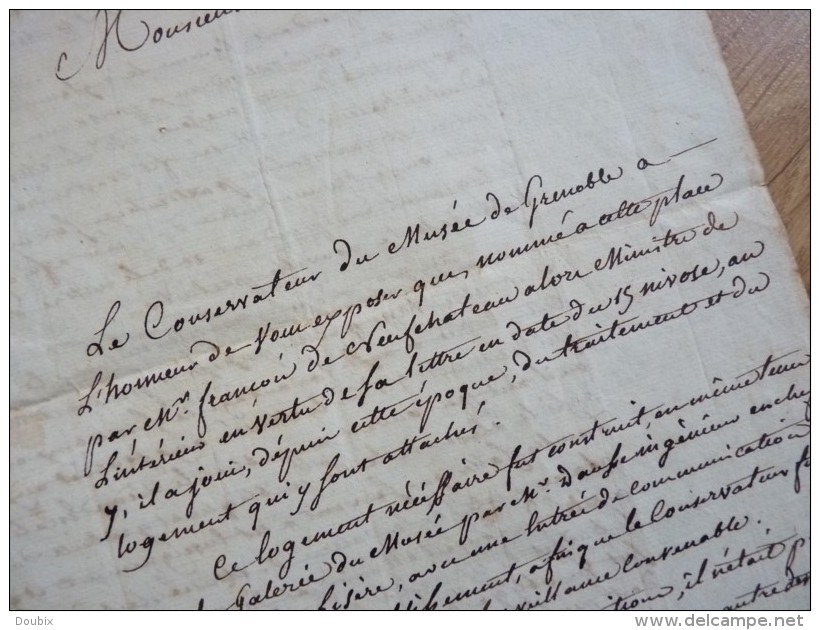 Monsieur
Le Conservateur du Musée de Grenoble a
L'honneur de vous exposer que, nommé a cette place
par Mr. françois de Neufchateau alors Ministre de
L'intérieur en vertu de sa lettre en date du 15 nivose, an
y, il a joui, depuis cette époque, du traitement et du
logement qui y sont attachés.
Ce logement nécessaire fut construit, en même tems
Galerie du Musée par Mr. Dausse ingénieur en chef
l'isère, avec une Entrée de communication
afin que le Conservateur
surveillance convenable.
il n'était
autre
Doubix
www.delcampe.net